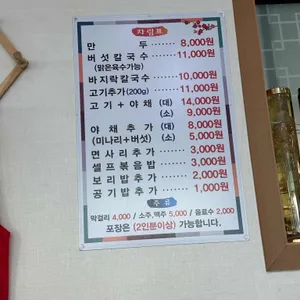 차림표
만 두 ········ 8,000원
버섯칼국수 ······ 11,000원
(맑은육수가능)
바지락칼국수 ···· 10,000원
고기추가(200g) ····· 11,000원
고기+야채 (대) 14,000원
(소) 9,000원
야채추가 (대) 8,000원
(미나리+버섯) (소) 5,000원
면사리추가 ······ 3,000원
셀프볶음밥 ······ 3,000원
보리밥추가 ······ 2,000원
공기밥추가 ······ 1,000원
주류
막걸리 4,000 / 소주,맥주 5,000 / 음료수 2,000
포장은 (2인분이상) 가능합니다.